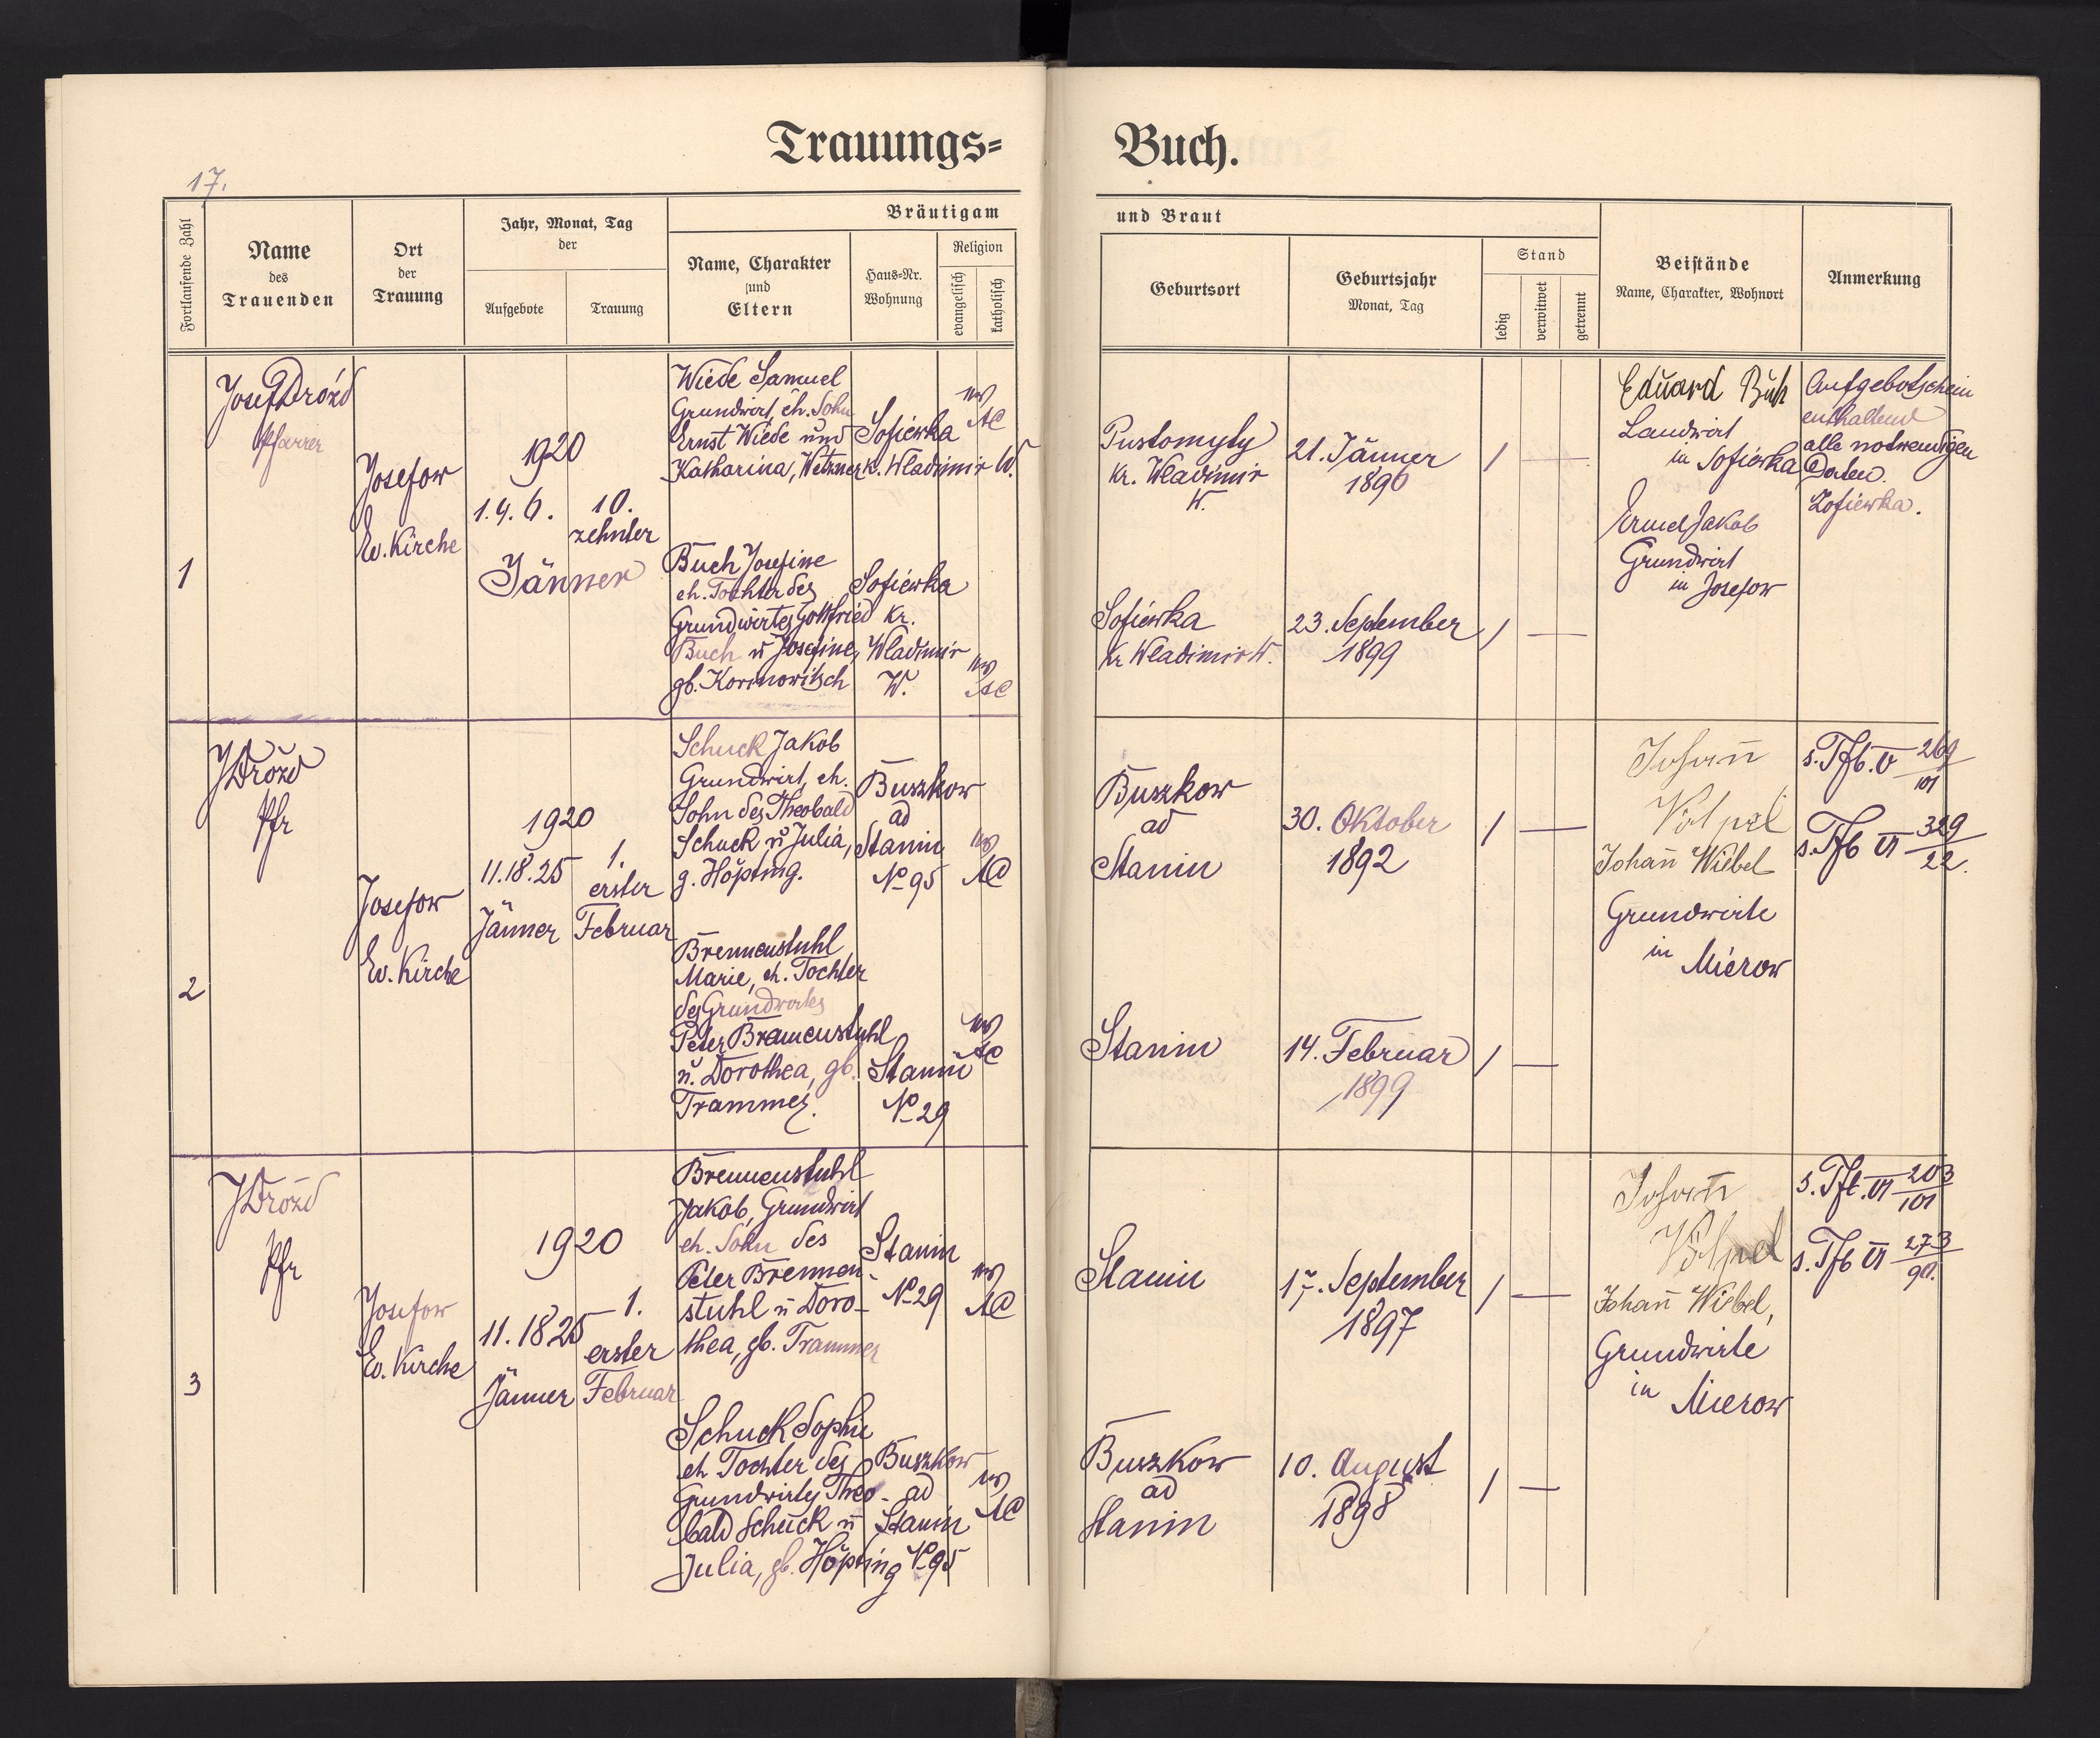 Trauungs= Buch.
17.
Fortlaufende Zahl
Name
des
Trauenden
Ort
der
Trauung
Jahr, Monat, Tag
der
Aufgebote
Trauung
Bräutigam
Name, Charakter
und
Eltern
Haus=Nr.
Wohnung
Religion
evangelisch
katholisch
und Braut
Geburtsort
Geburtsjahr
Monat, Tag
Stand
ledig
verwitwet
getrennt
Beistände
Name, Charakter, Wohnort
Anmerkung
1
Josef Drózd
Pfarrer
Josefow
Ev. Kirche
1920
1. 4. 6.
10.
zehnter
Jänner
Wiede Samuel
Grundwirt, eh. Sohn
Ernst Wiede und
Katharina,
Sofiewka
k. Wladimir W.
AC
Buch Josefine
eh. Tochter des
Grundwirtes Gottfried
Buch u Josefine,
gb. Korinowitsch
Sofiewka
Kr.
Wladimir
W.
AC
Pustomyty
Kr. Wladimir
W.
21. Jänner
1896
/ —
Sofiewka
Kr Wladimir W.
23. September
1899
/ —
Eduard Buch
Landwirt
in Sofiewka
Jakob
Grundwirt
in Josefow
Aufgebotschein
enthaltend
alle notwendigen
Daten.
Zofiewka.
2
JDrózd
Pfr
Josefow
Ev. Kirche
1920
11. 18. 25
Jänner
1.
erster
Februar
Schuck Jakob
Grundwirt, eh.
Sohn des Theobald
Schuck u Julia,
g. Höpting.
Buszkow
ad
Stanin
No 95
AC
Brennenstuhl
Marie, eh. Tochter
des Grundwirtes
Peter Brennenstuhl
u. Dorothea, gb.
Trammer.
Stanin
No 29
AC
Buszkow
ad
Stanin
30. Oktober
1892
/ —
Stanin
14. Februar
1899
/ —
Johann
Johann Wiebel
Grundwirte
in Mierow
s. Tfb. V 269/101
s. Tfb VI 329/22.
3
JDrózd
Pfr
Josefow
Ev. Kirche
1920
11. 18 25
Jänner
1.
erster
Februar
Brennenstuhl
Jakob, Grundwirt
eh. Sohn des
Peter Brennen-
stuhl u Doro-
thea, gb. Trammer
Stanin
No 29
AC
Schuck Sophie
eh Tochter des
Grundwirtes Theo-
bald Schuck u
Julia, gb. Höpting
Buszkow
ad
Stanin
No 95
AC
Stanin
17. September
1897
/ —
Buszkow
ad
Stanin
10. August
1898
/ —
Johann
Johann Wiebel,
Grundwirte
in Mierow
s. Tfb. VI 203/101
s. Tfb VI 273/90.